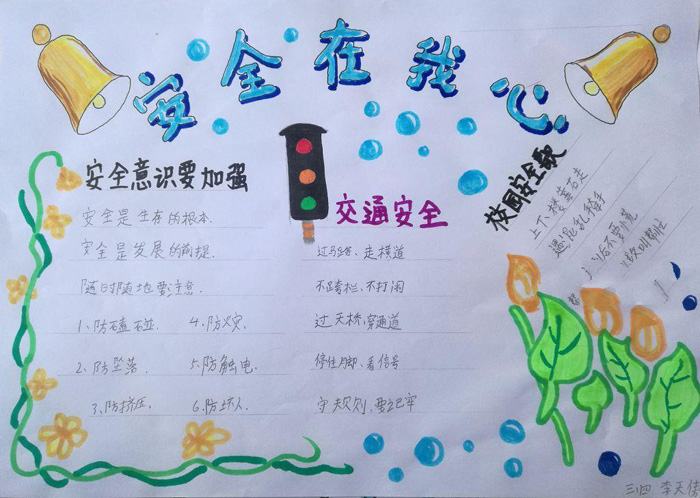 安全在我心
安全意识要加强
安全是生存的根本.
安全是发展的前提.
随时随地要注意.
1、防磕碰. 4、防火灾.
2、防坠落. 5、防触电.
3、防挤压. 6、防坏人.
交通安全
过马路、走横道
不跨栏、不打闹
过天桥,穿通道
停住脚、看信号
守规则、要记牢
校园安全歌
上下楼靠右走
遇
三四 李天